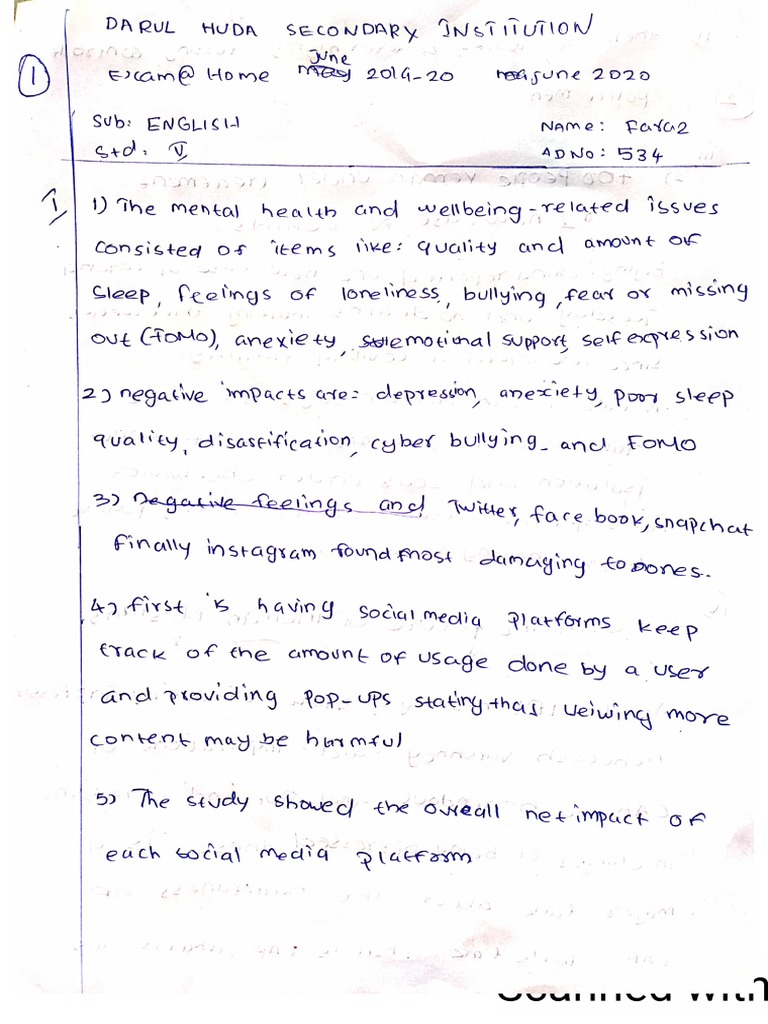 DARUL HUDA SECONDARY INSTITUTION
1
Exam@ Home june 2019-20 june 2020
Sub: ENGLISH Name: Faraz
Std: V ADNO: 534
I 1) The mental health and wellbeing-related issues
consisted of items like: quality and amount of
sleep, feelings of loneliness, bullying, fear or missing
out (FOMO), anexiety, emotional support, self expression
2) negative impacts are: depression, anexiety, poor sleep
quality, disastification, cyber bullying- and FOMO
3) negative feelings and Twitter, face book, snapchat
finally instagram found most damaging to ones.
4) first is having social media platforms keep
track of the amount of usage done by a user
and providing pop-ups stating that veiwing more
content may be harmful
5) The study showed the overall net impact of
each social media platform
Scanned with